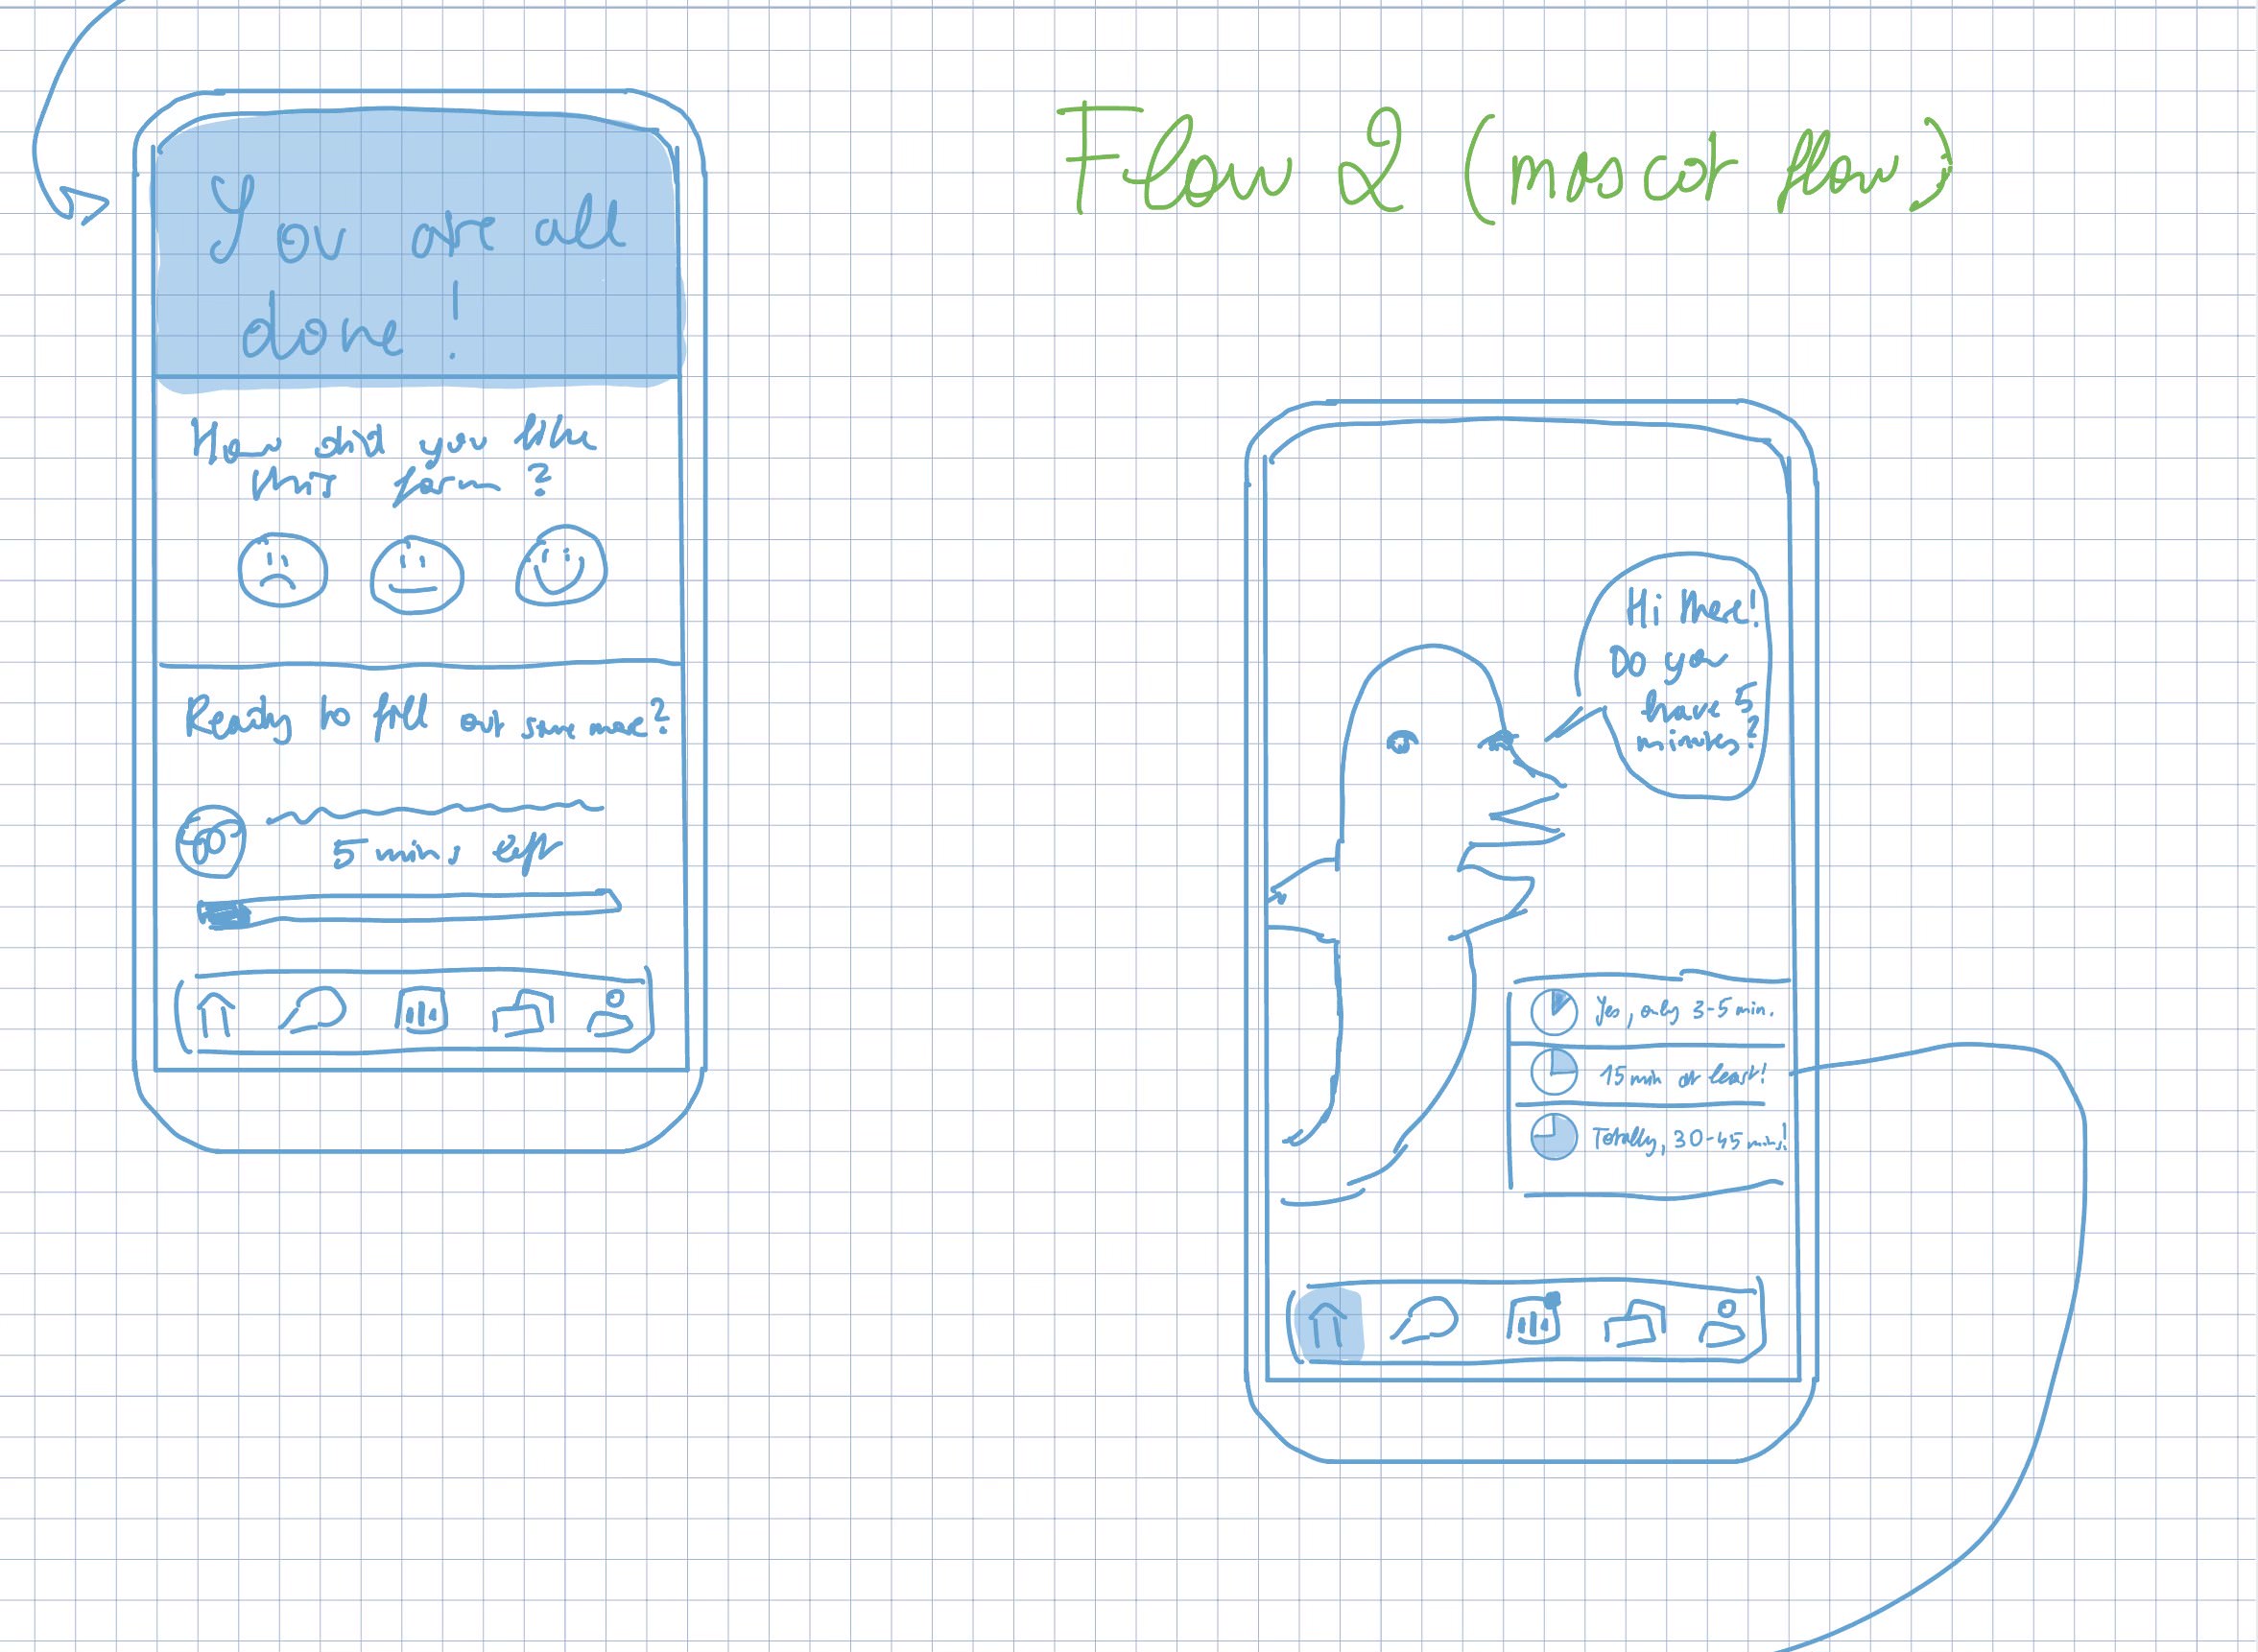 You are all
done!
How did you like
this form?
Ready to fill out some more?
5 mins left
Flow 2 (mascot flow)
Hi there!
Do you
have 5
minutes?
Yes, only 3-5 min.
15 min at least!
Totally, 30-45 mins!